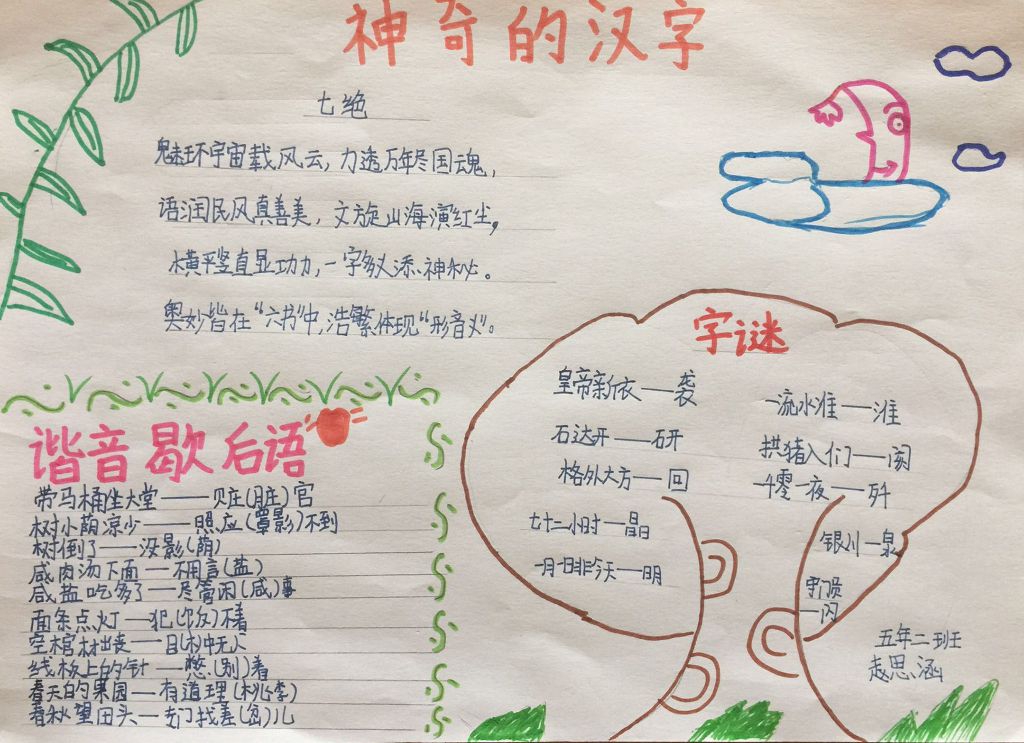 神奇的汉字
七绝
魅环宇宙载风云,力透万年尽国魂,
语润民风真善美,文旋山海演红尘,
横平竖直显功力,一字多义添神秘。
奥妙皆在“六书”中,浩繁体现“形音义”。
谐音歇后语
带马桶坐大堂——赃(脏)官
树小荫凉少——照应(荫影)不到
树倒了——没影(荫)
咸肉汤下面—不用言(盐)
咸盐吃多了—尽管闲(咸)事
面条点灯—犯(饭)不着
空棺材出丧—目(木)中无人
线板上的针—憋(别)着
春天的果园—有道理(桃李)
春秋望田头—专门找差(岔)儿
字谜
皇帝新衣——袭
石达开——研
格外大方—回
七十二小时—晶
一月一日非今天—明
一流水准——淮
拱猪入们—阂
一千零一夜——歼
银川一泉
守门员
一闪
五年二班
赵思涵